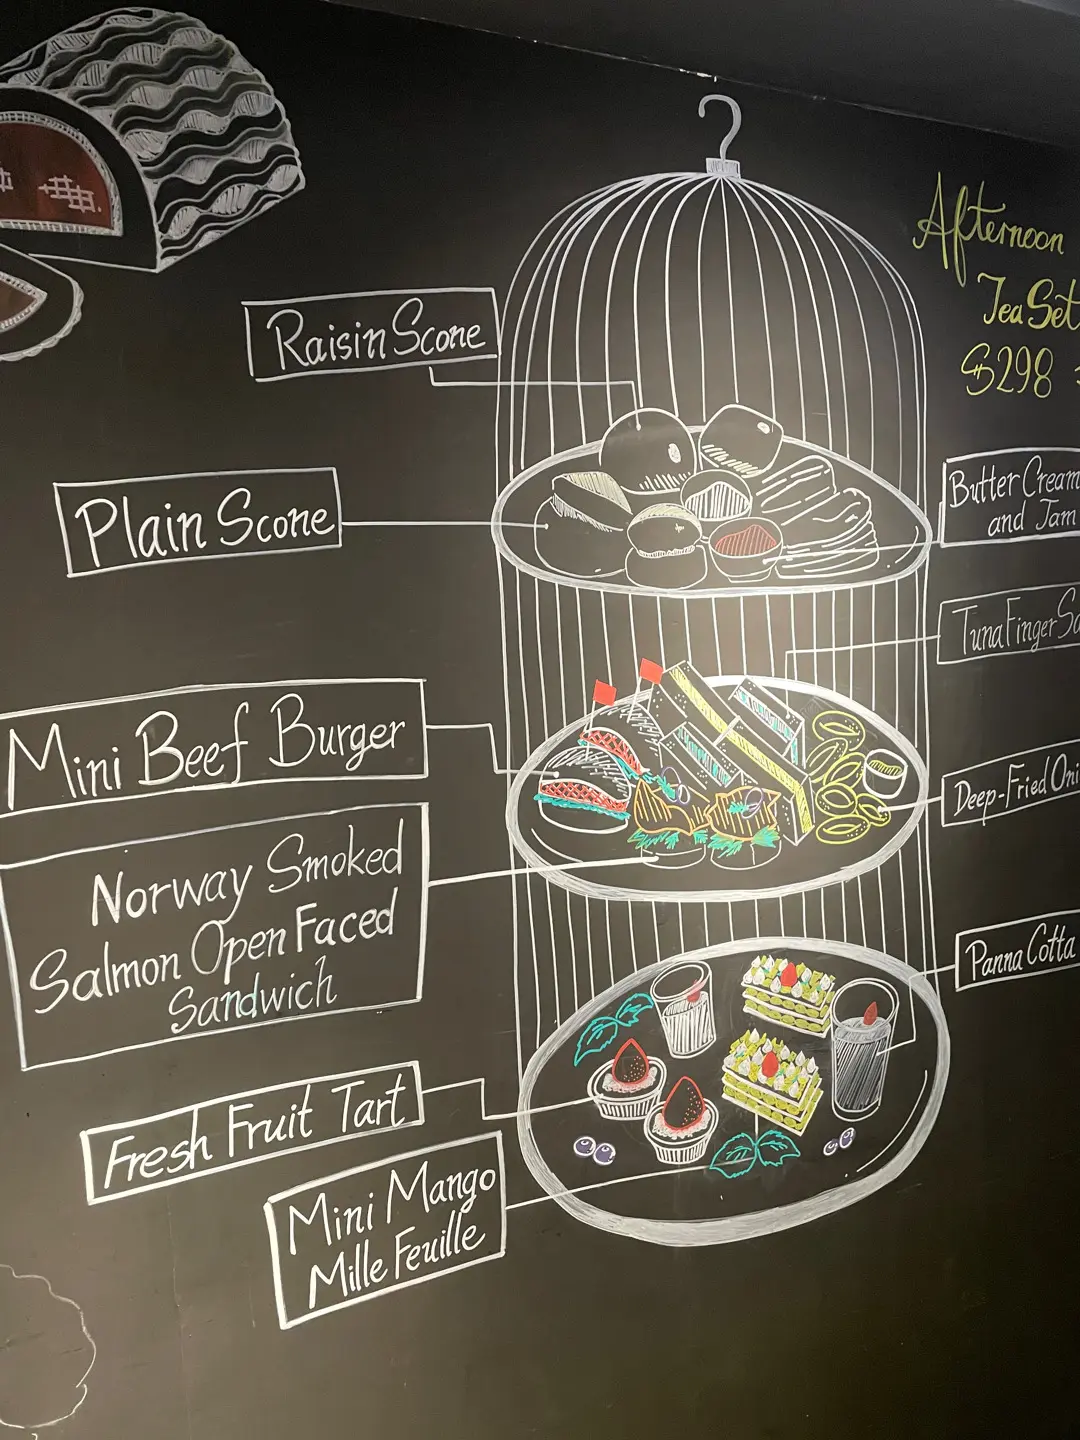 Afternoon
Tea Set
$298
Raisin Scone
Plain Scone
Butter Cream
and Jam
Tuna Finger
Mini Beef Burger
Deep-Fried
Norway Smoked
Salmon Open Faced
Sandwich
Panna Cotta
Fresh Fruit Tart
Mini Mango
Mille Feuille